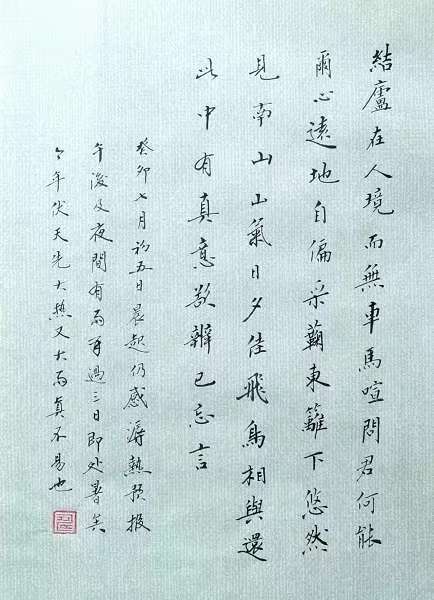 結廬在人境而無車馬喧問君何能
爾心遠地自偏采菊東籬下悠然
見南山山氣日夕佳飛鳥相與還
此中有真意欲辨已忘言
癸卯七月初五日晨起仍感溽熱預报
午後及夜間有雨再過三日即处暑矣
今年伏天先大热又大雨真不易也